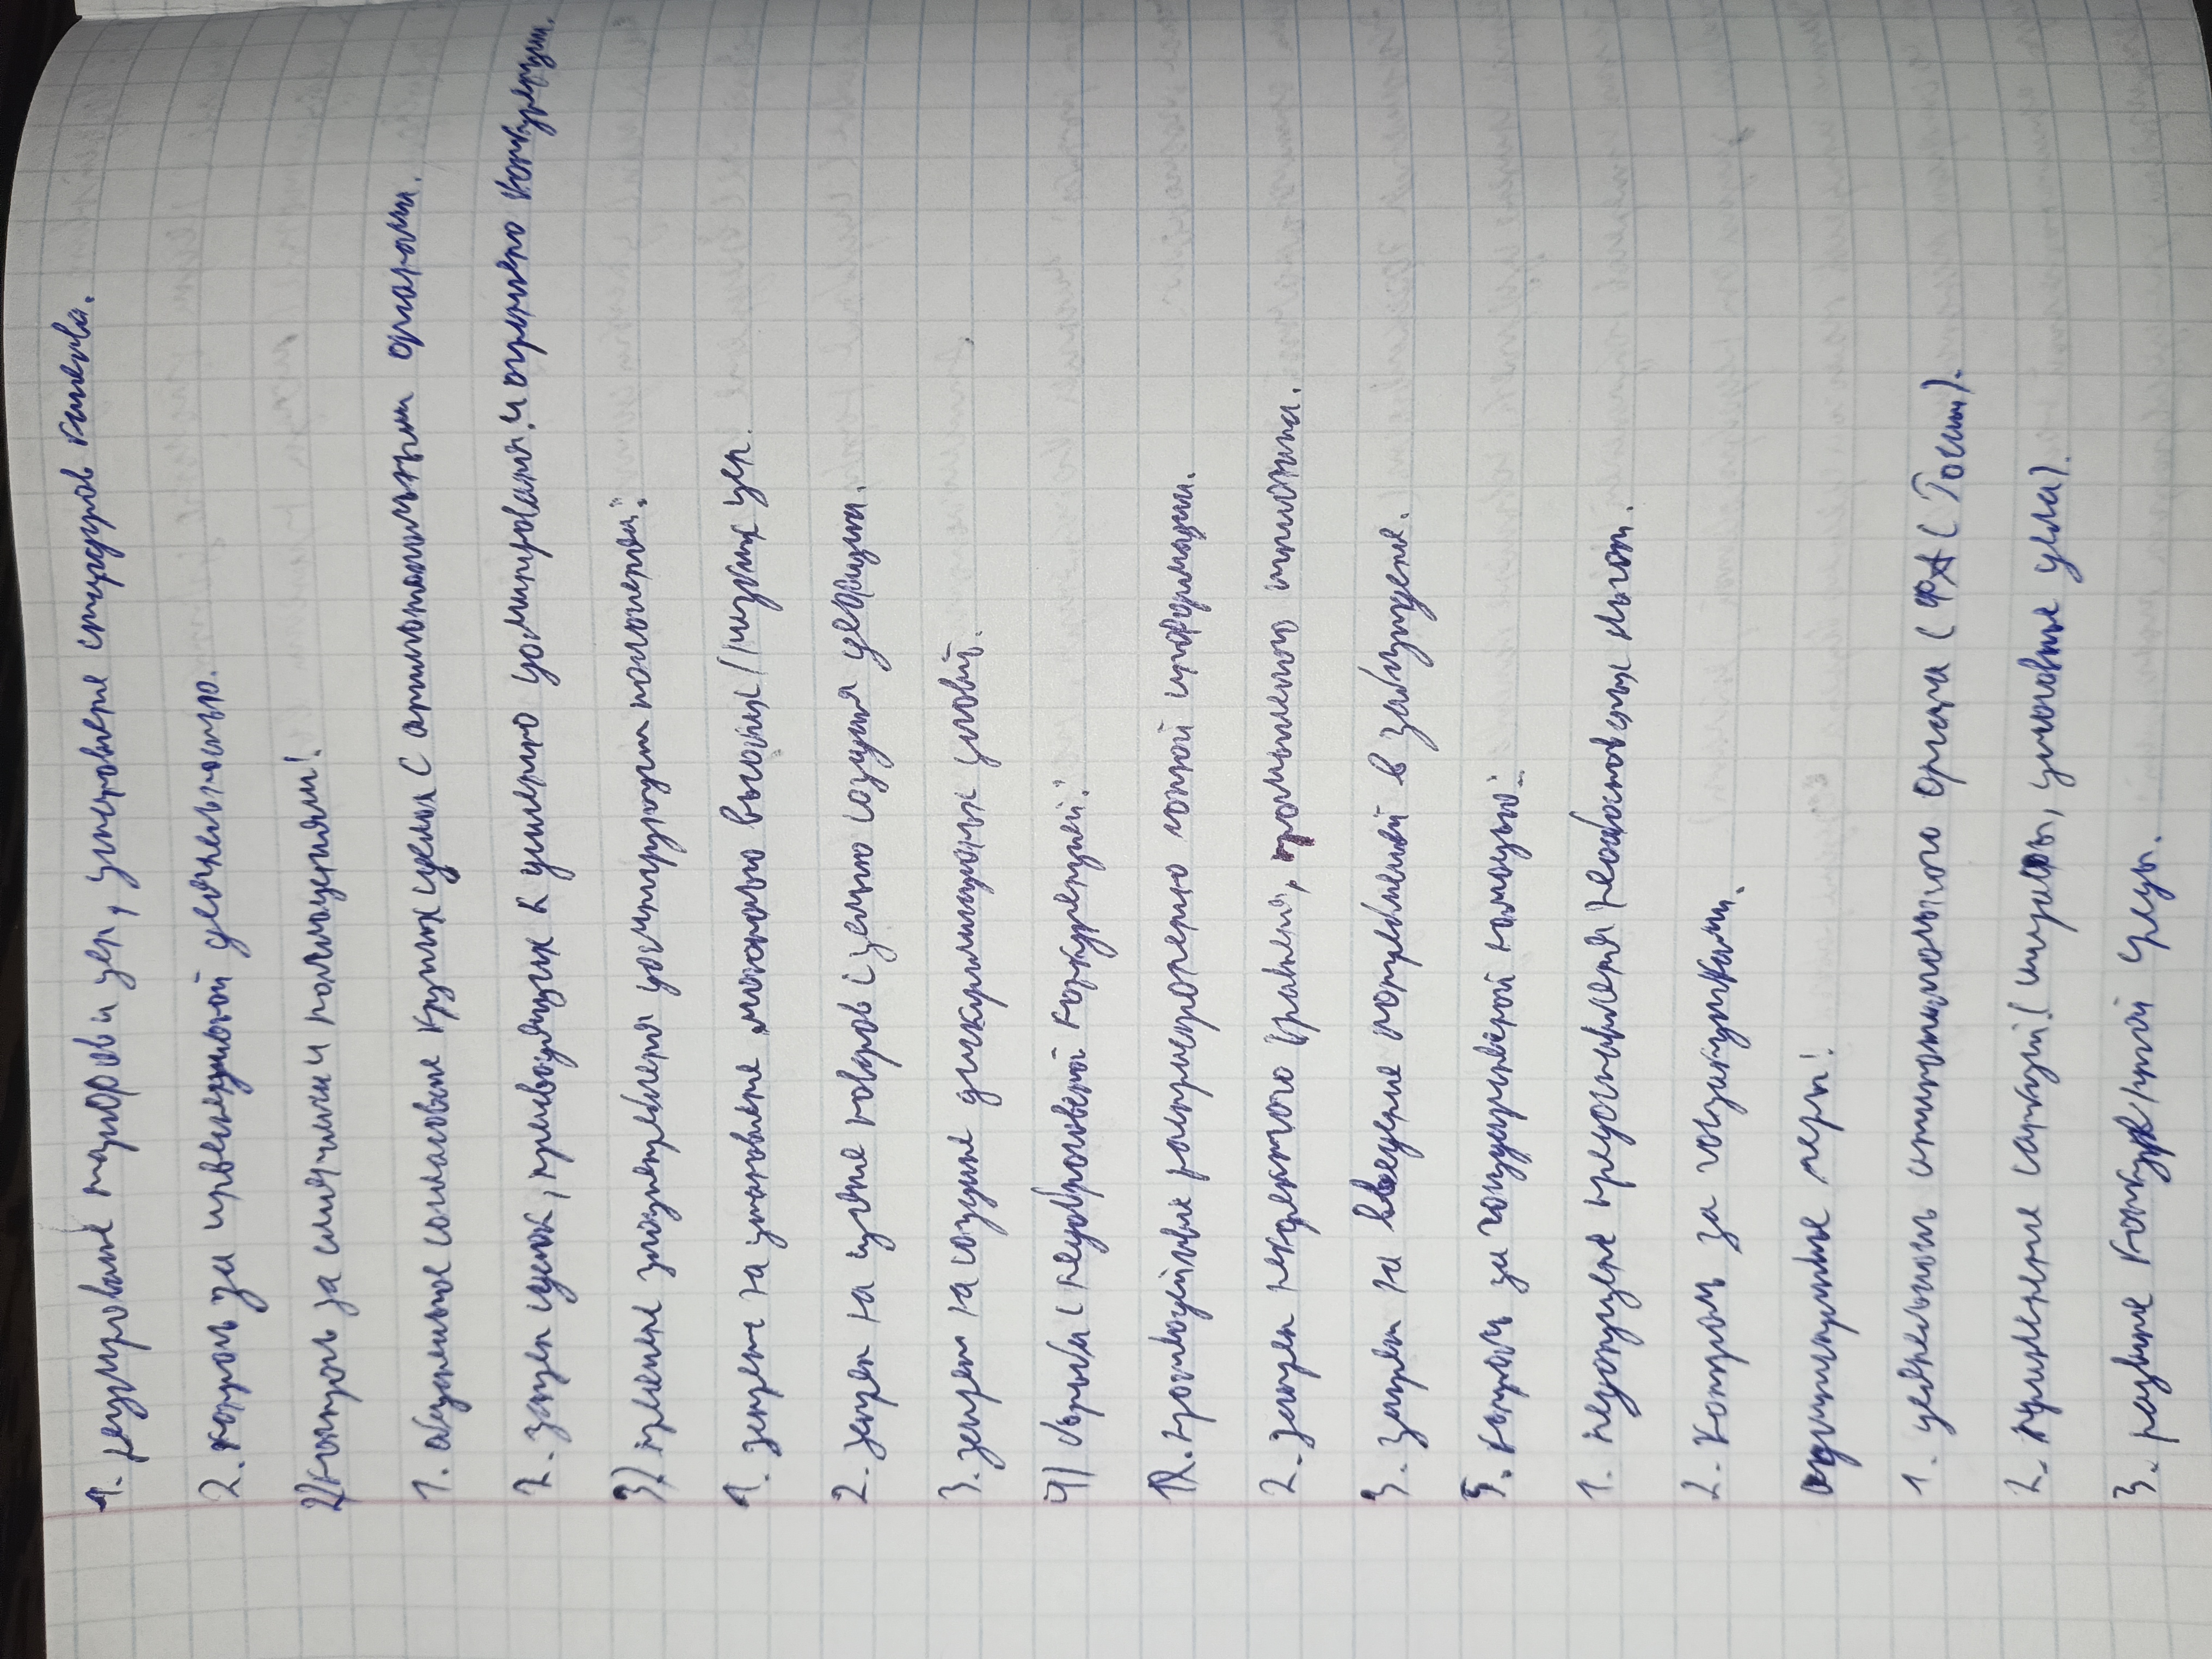 1. регулирование тарифов и цен, установление стандартов качества.
2. контроль за инвестиционной деятельностью.
2) контроль за слиянием и поглощениями:
1. обязательное согласование крупных сделок с антимонопольным органом.
2. запрет сделок, приводящих к усилению доминирования и ограничению конкуренции.
3) пресечение злоупотребления доминирующим положением:
1. запрет на установление монопольно высоких/низких цен.
2. запрет на изъятие товаров с целью создания дефицита.
3. запрет на создание дискриминационных условий.
4) борьба с недобросовестной конкуренцией:
1. противодействие распространению ложной информации.
2. запрет некорректного сравнения, промышленного шпионажа.
3. запрет на введение потребителей в заблуждение.
5. контроль за государственной помощью:
1. недопущение предоставления необоснованных льгот.
2. контроль за госзакупками.
административные меры:
1. деятельность антимонопольного органа (ФА
2. применение санкций (штрафы, уголовные дела).
3. развитие конкурентной среды.